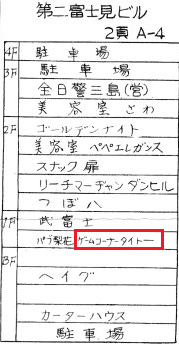 第二富士見ビル
2頁 A-4
4F 駐車場
3F 駐車場
全日警三島(営)
美容室 さわ
2F ゴールデンナイト
美容室 ペペエレガンス
スナック 扉
リーチマーヂャンダンヒル
つぼ八
1F 武富士
パブ梨花 ゲームコーナータイトー
BF
ヘイグ
カーターハウス
駐車場